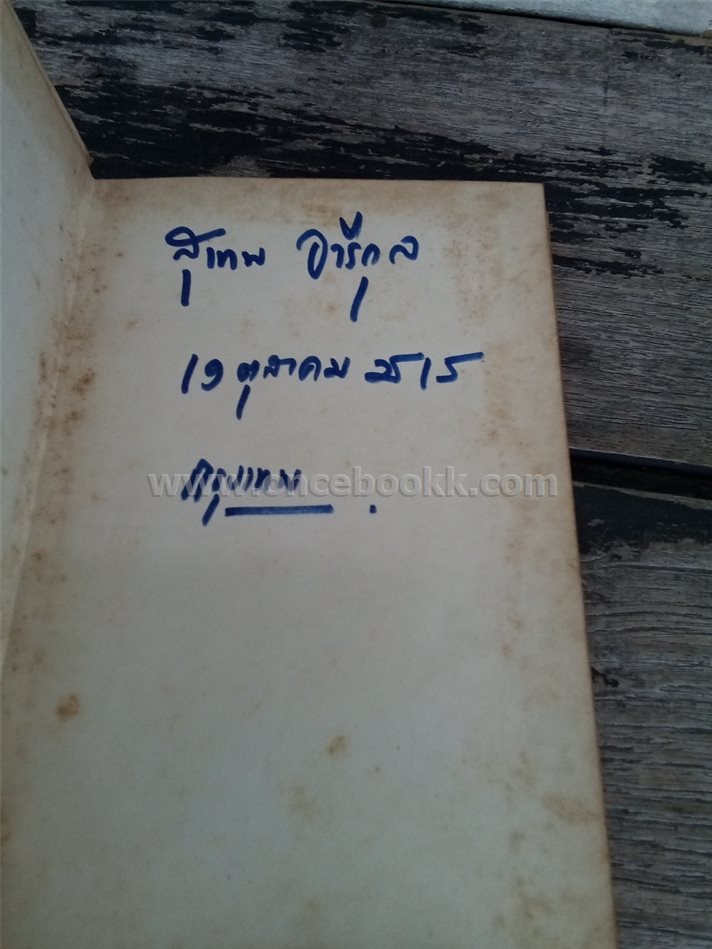 สุเทพ อารีกุล
19 ตุลาคม 2515
กรุงเทพ
www.oncebookk.com